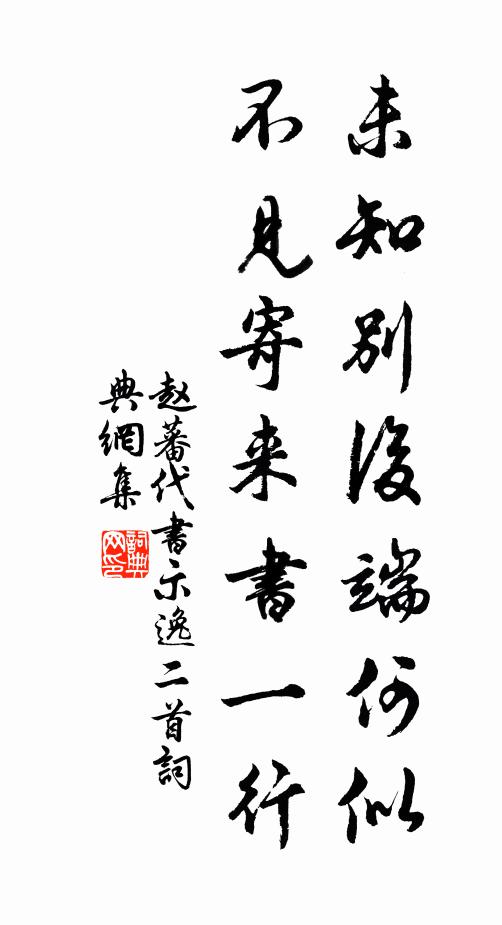 未知別後端何似
不見寄来書一行
赵蕃代書示逸二首詞
典網集
詞典网印